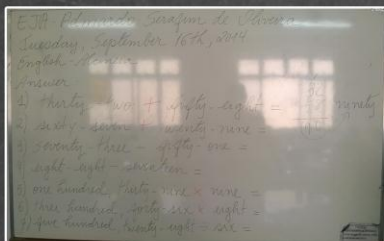 EJA - Raimundo Serafim de Oliveira
September 16th, 2014
English
Answer
1) thirty two + fifty-eight = ninety
2) sixty-seven + twenty-nine =
3) seventy-three - fifty-one =
4) eight-eight - seventeen =
5) one hundred thirty-nine × nine =
6) three hundred, forty-six × eight =
7) five hundred, twenty-eight ÷ six =